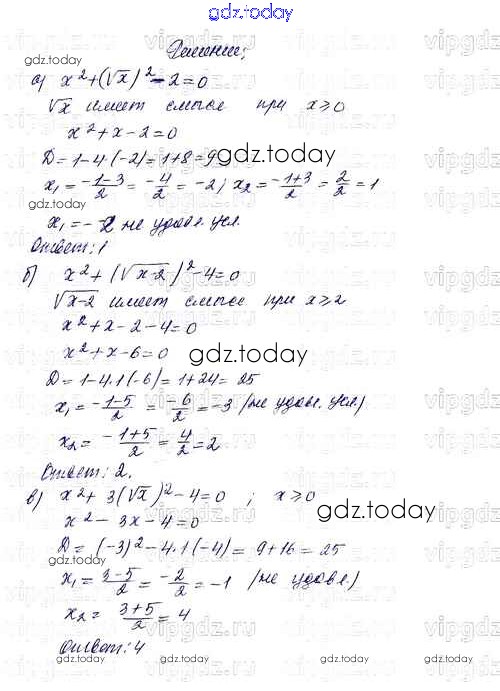 gdz.today
Решение:
а) x² + (√x)² - 2 = 0
√x имеет смысл при x ≥ 0
x² + x - 2 = 0
D = 1 - 4·(-2) = 1 + 8 = 9
gdz.today
x₁ = (-1-3)/2 = -4/2 = -2; x₂ = (-1+3)/2 = 2/2 = 1
gdz.today
x₁ = -2 не удовл. усл.
Ответ: 1
б) x² + (√x-2)² - 4 = 0
√x-2 имеет смысл при x ≥ 2
x² + x - 2 - 4 = 0
x² + x - 6 = 0
gdz.today
D = 1 - 4·1·(-6) = 1 + 24 = 25
x₁ = (-1-5)/2 = -6/2 = -3 (не удовл. усл.)
x₂ = (-1+5)/2 = 4/2 = 2
Ответ: 2.
в) x² + 3(√x)² - 4 = 0; x ≥ 0
gdz.today
x² - 3x - 4 = 0
D = (-3)² - 4·1·(-4) = 9 + 16 = 25
x₁ = (3-5)/2 = -2/2 = -1 (не удовл.)
x₂ = (3+5)/2 = 4
Ответ: 4
gdz.today
gdz.today
vipgdz.ru